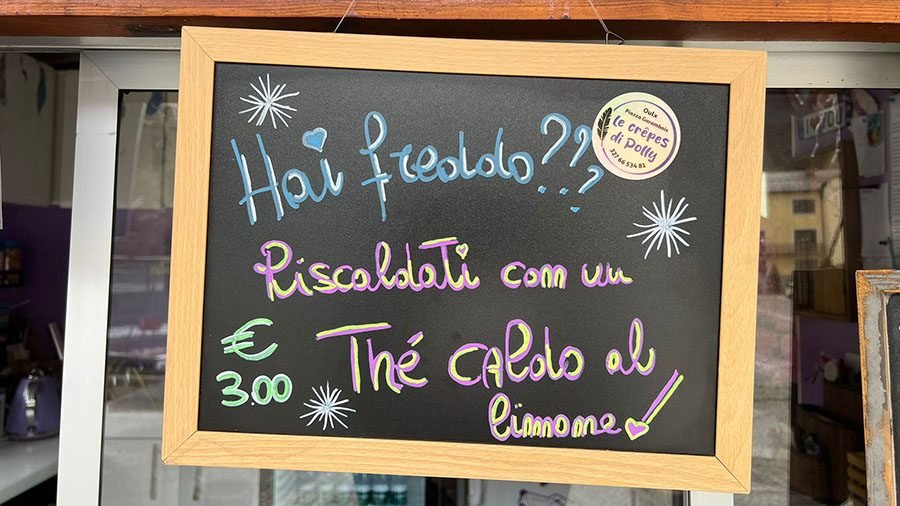 Hai freddo???
Oulx
Piazza Garambois
le crêpes
di Polly
327 66 534 81
Riscaldati con un
€
3.00
Thé CALdo al
limone!